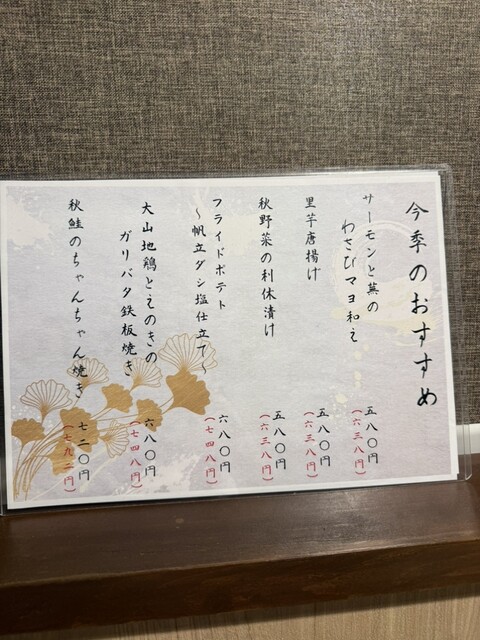 今季のおすすめ
サーモンと蕪の
わさびマヨ和え
五八〇円
(六三八円)
里芋唐揚げ
五八〇円
(六三八円)
秋野菜の利休漬け
五八〇円
(六三八円)
フライドポテト
～帆立ダシ塩仕立て～
六八〇円
(七四八円)
大山地鶏とえのきの
ガリバタ鉄板焼き
六八〇円
(七四八円)
秋鮭のちゃんちゃん焼き
七二〇円
(七九二円)